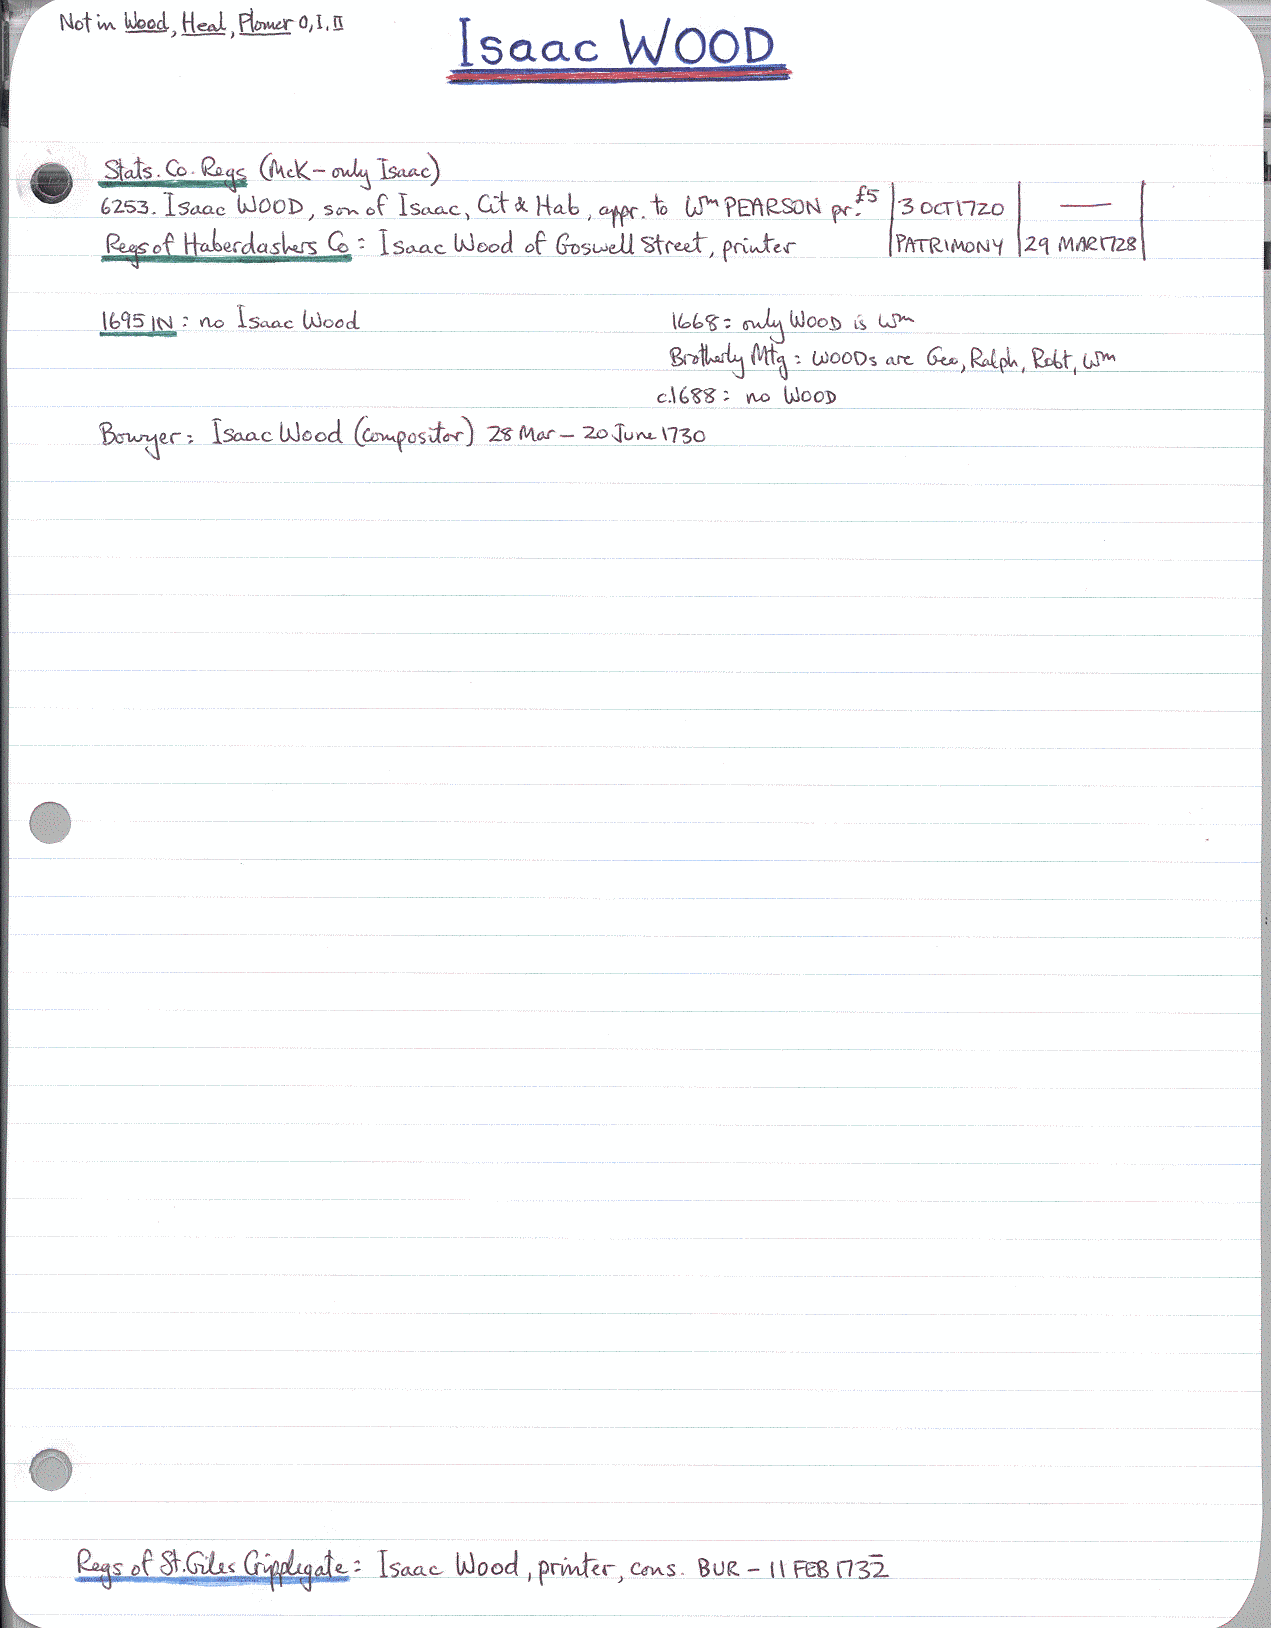 Not in Wood, Heal, Plomer 0, I, II
Isaac WOOD
Stats. Co. Regs (McK – only Isaac)
6253. Isaac WOOD, son of Isaac, Cit & Hab, appr. to Wm PEARSON pr. £5 | 3 OCT 1720 | — |
Regs of Haberdashers Co: Isaac Wood of Goswell Street, printer | PATRIMONY | 29 MAR 1728 |
1695 IN: no Isaac Wood
1668: only WOOD is Wm
Brotherly Mtg: WOODs are Geo, Ralph, Robt, Wm
c.1688: no WOOD
Bowyer: Isaac Wood (compositor) 28 Mar – 20 June 1730
Regs of St. Giles Cripplegate: Isaac Wood, printer, cons. BUR – 11 FEB 1732